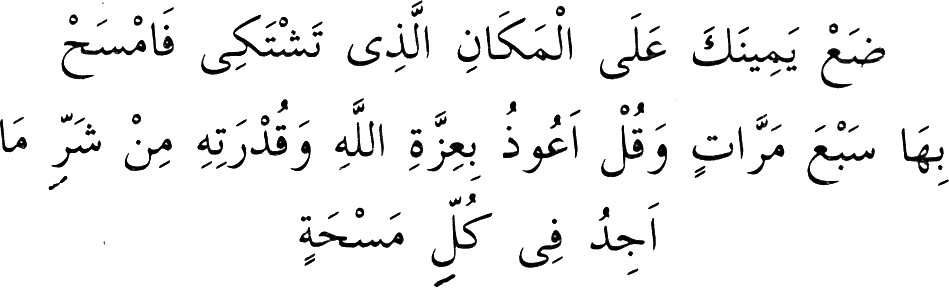 ضَعْ يَمِينَكَ عَلَى الْمَكَانِ الَّذِى تَشْتَكِى فَامْسَحْ
بِهَا سَبْعَ مَرَّاتٍ وَقُلْ اَعُوذُ بِعِزَّةِ اللَّهِ وَقُدْرَتِهِ مِنْ شَرِّ مَا
اَجِدُ فِى كُلِّ مَسْحَةٍ